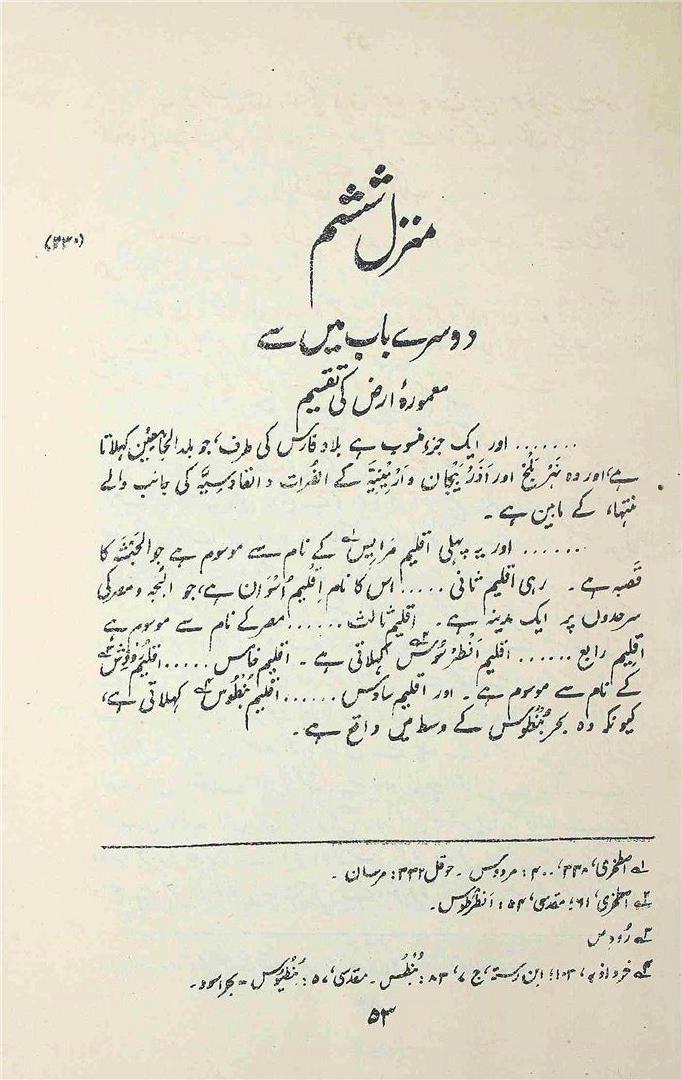 منزل ششم
(۳۳۰)
دوسرے باب میں سے
معمورۂ ارض کی تقسیم
....... اور ایک جزء منسوب ہے بلاد فارس کی طرف، جو بلد الخاضعین کہلاتا
ہے، اور وہ نہر بلخ اور آذربیجان و ارمینیۃ کے الفرات و القادسیۃ کی جانب والے
منتہاء کے مابین ہے۔
...... اور یہ پہلی اقلیم مرابیس۱ کے نام سے موسوم ہے جو الحبشۃ کا
قصبہ ہے۔ رہی اقلیم ثانی ..... اس کا نام اقلیم اسوان ہے، جو البجہ و مصر کی
سرحدوں پر ایک مدینہ ہے۔ اقلیم ثالث ...... مصر کے نام سے موسوم ہے
اقلیم رابع ...... اقلیم انطرسوس۲ کہلاتی ہے۔ اقلیم خامس ..... اقلیم روذس۳
کے نام سے موسوم ہے۔ اور اقلیم سادس ...... اقلیم بنطوس۴ کہلاتی ہے،
کیونکہ وہ بحر بنطوس کے وسط میں واقع ہے۔
۱ اصطخری، ۳۳۸، ۴۰۰: مرودس۔ حوقل ۳۳۲: مرسان۔
۲ اصطخری، ۶۱؛ مقدسی، ۵۴: انطرطوس۔
۳ رودس
۴ خرداذبہ، ۱۰۳؛ ابن رستہ، ج ۷، ۸۳: بنطس۔ مقدسی، ۵۷: بنطیوس = بحر اسود۔
۵۳